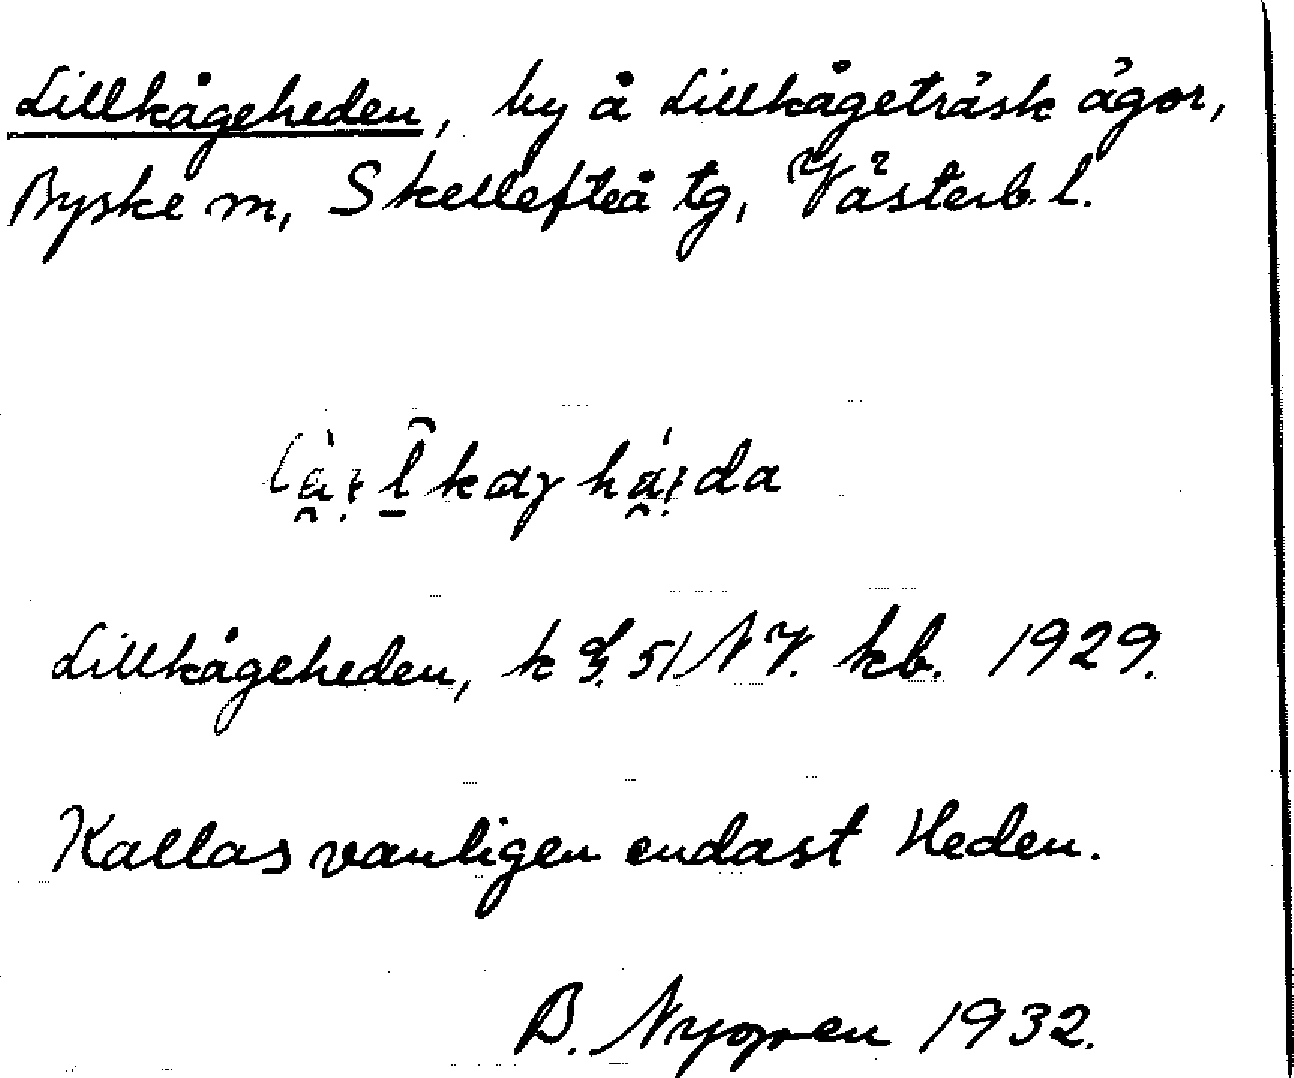 Lillkågeheden, by å Lillkågeträsk ägor,
Byske sn, Skellefteå tg, Västerb. l.
Lillkågeheden, k bl. 51 NV. kb. 1929.
Kallas vanligen endast Heden.
B. Nygren 1932.